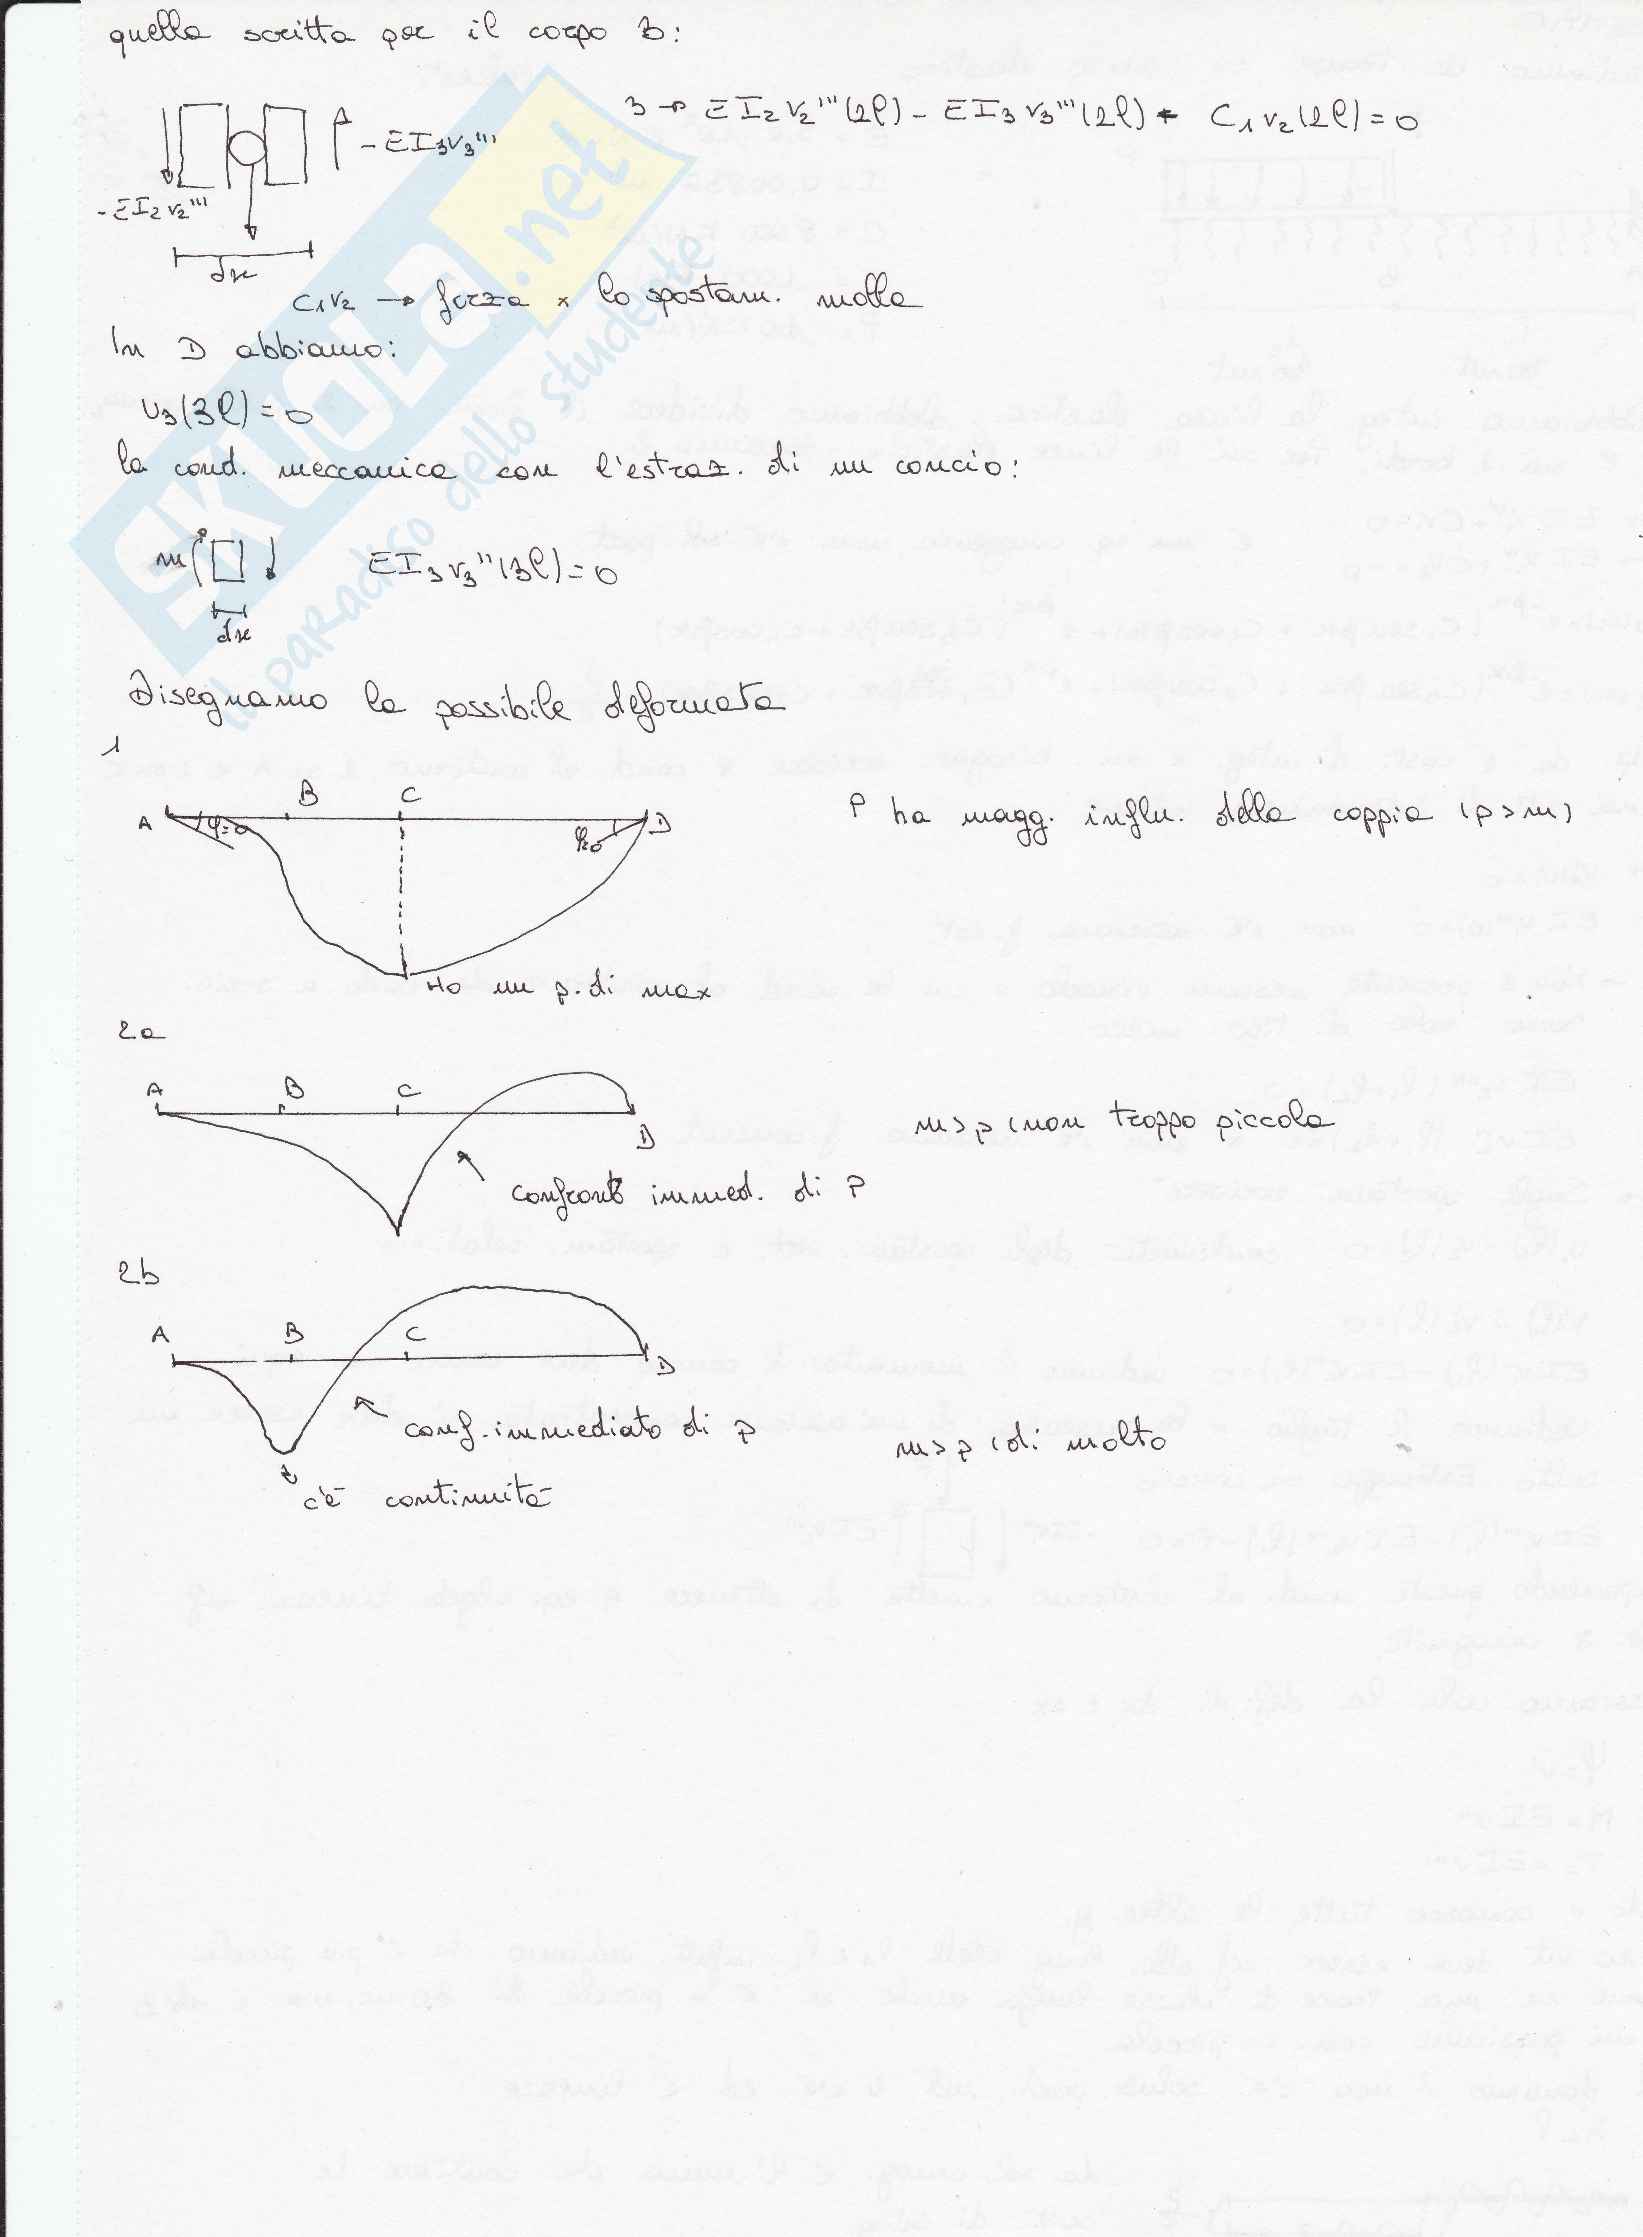 quella scritta per il corpo B:
3 → EI₂v₂'''(2l) - EI₃v₃'''(2l) + C₁v₂(2l) = 0
- EI₃v₃'''
- EI₂v₂'''
dx
C₁v₂ → forza x lo spostam. molla
In D abbiamo:
v₃(3l) = 0
la cond. meccanica con l'estraz. di un concio:
m
EI₃v₃''(3l) = 0
dx
Disegnamo la possibile deformata
1
A B C D
φ=0
P ha magg. influ. della coppia (p>m)
Ho un p. di max
2a
A B C D
m>p (non troppo piccola
confronto immed. di P
2b
A B C D
conf. immediato di P
m>p (di molto
c'è continuità
SKUOLA.net
il paradiso dello studente